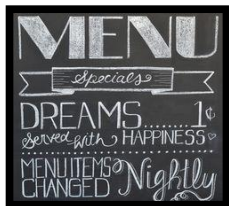 MENU
Specials
DREAMS......1¢
Served with HAPPINESS♡
MENU ITEMS
CHANGED Nightly